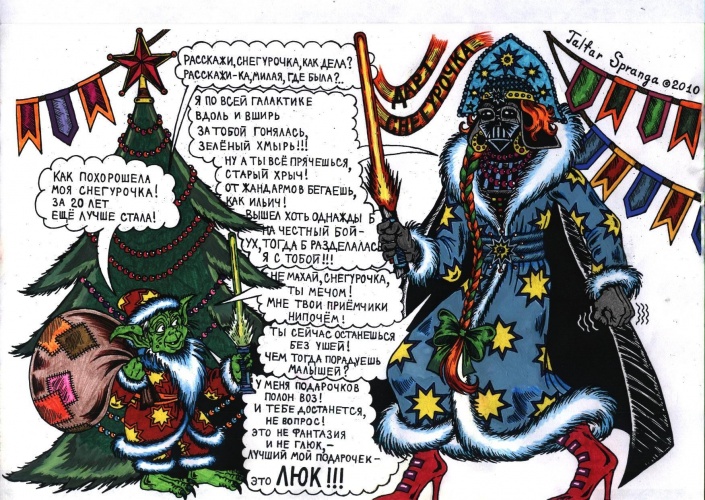 РАССКАЖИ, СНЕГУРОЧКА, КАК ДЕЛА?
РАССКАЖИ-КА, МИЛАЯ, ГДЕ БЫЛА?..
Я ПО ВСЕЙ ГАЛАКТИКЕ
ВДОЛЬ И ВШИРЬ
ЗА ТОБОЙ ГОНЯЛАСЬ,
ЗЕЛЁНЫЙ ХМЫРЬ!!!
НУ А ТЫ ВСЁ ПРЯЧЕШЬСЯ,
СТАРЫЙ ХРЫЧ!
ОТ ЖАНДАРМОВ БЕГАЕШЬ,
КАК ИЛЬИЧ!
ВЫШЕЛ ХОТЬ ОДНАЖДЫ Б
НА ЧЕСТНЫЙ БОЙ-
УХ, ТОГДА Б РАЗДЕЛАЛАСЬ
Я С ТОБОЙ!!!
КАК ПОХОРОШЕЛА
МОЯ СНЕГУРОЧКА!
ЗА 20 ЛЕТ
ЕЩЁ ЛУЧШЕ СТАЛА!
НЕ МАХАЙ, СНЕГУРОЧКА,
ТЫ МЕЧОМ!
МНЕ ТВОИ ПРИЁМЧИКИ
НИПОЧЁМ!
ТЫ СЕЙЧАС ОСТАНЕШЬСЯ
БЕЗ УШЕЙ!
ЧЕМ ТОГДА ПОРАДУЕШЬ
МАЛЫШЕЙ?
У МЕНЯ ПОДАРОЧКОВ
ПОЛОН ВОЗ!
И ТЕБЕ ДОСТАНЕТСЯ,
НЕ ВОПРОС!
ЭТО НЕ ФАНТАЗИЯ
И НЕ ГЛЮК,
ЛУЧШИЙ МОЙ ПОДАРОЧЕК-
ЭТО ЛЮК!!!
ДАРТ
СНЕГУРОЧКА
Taltar Spranga ©2010